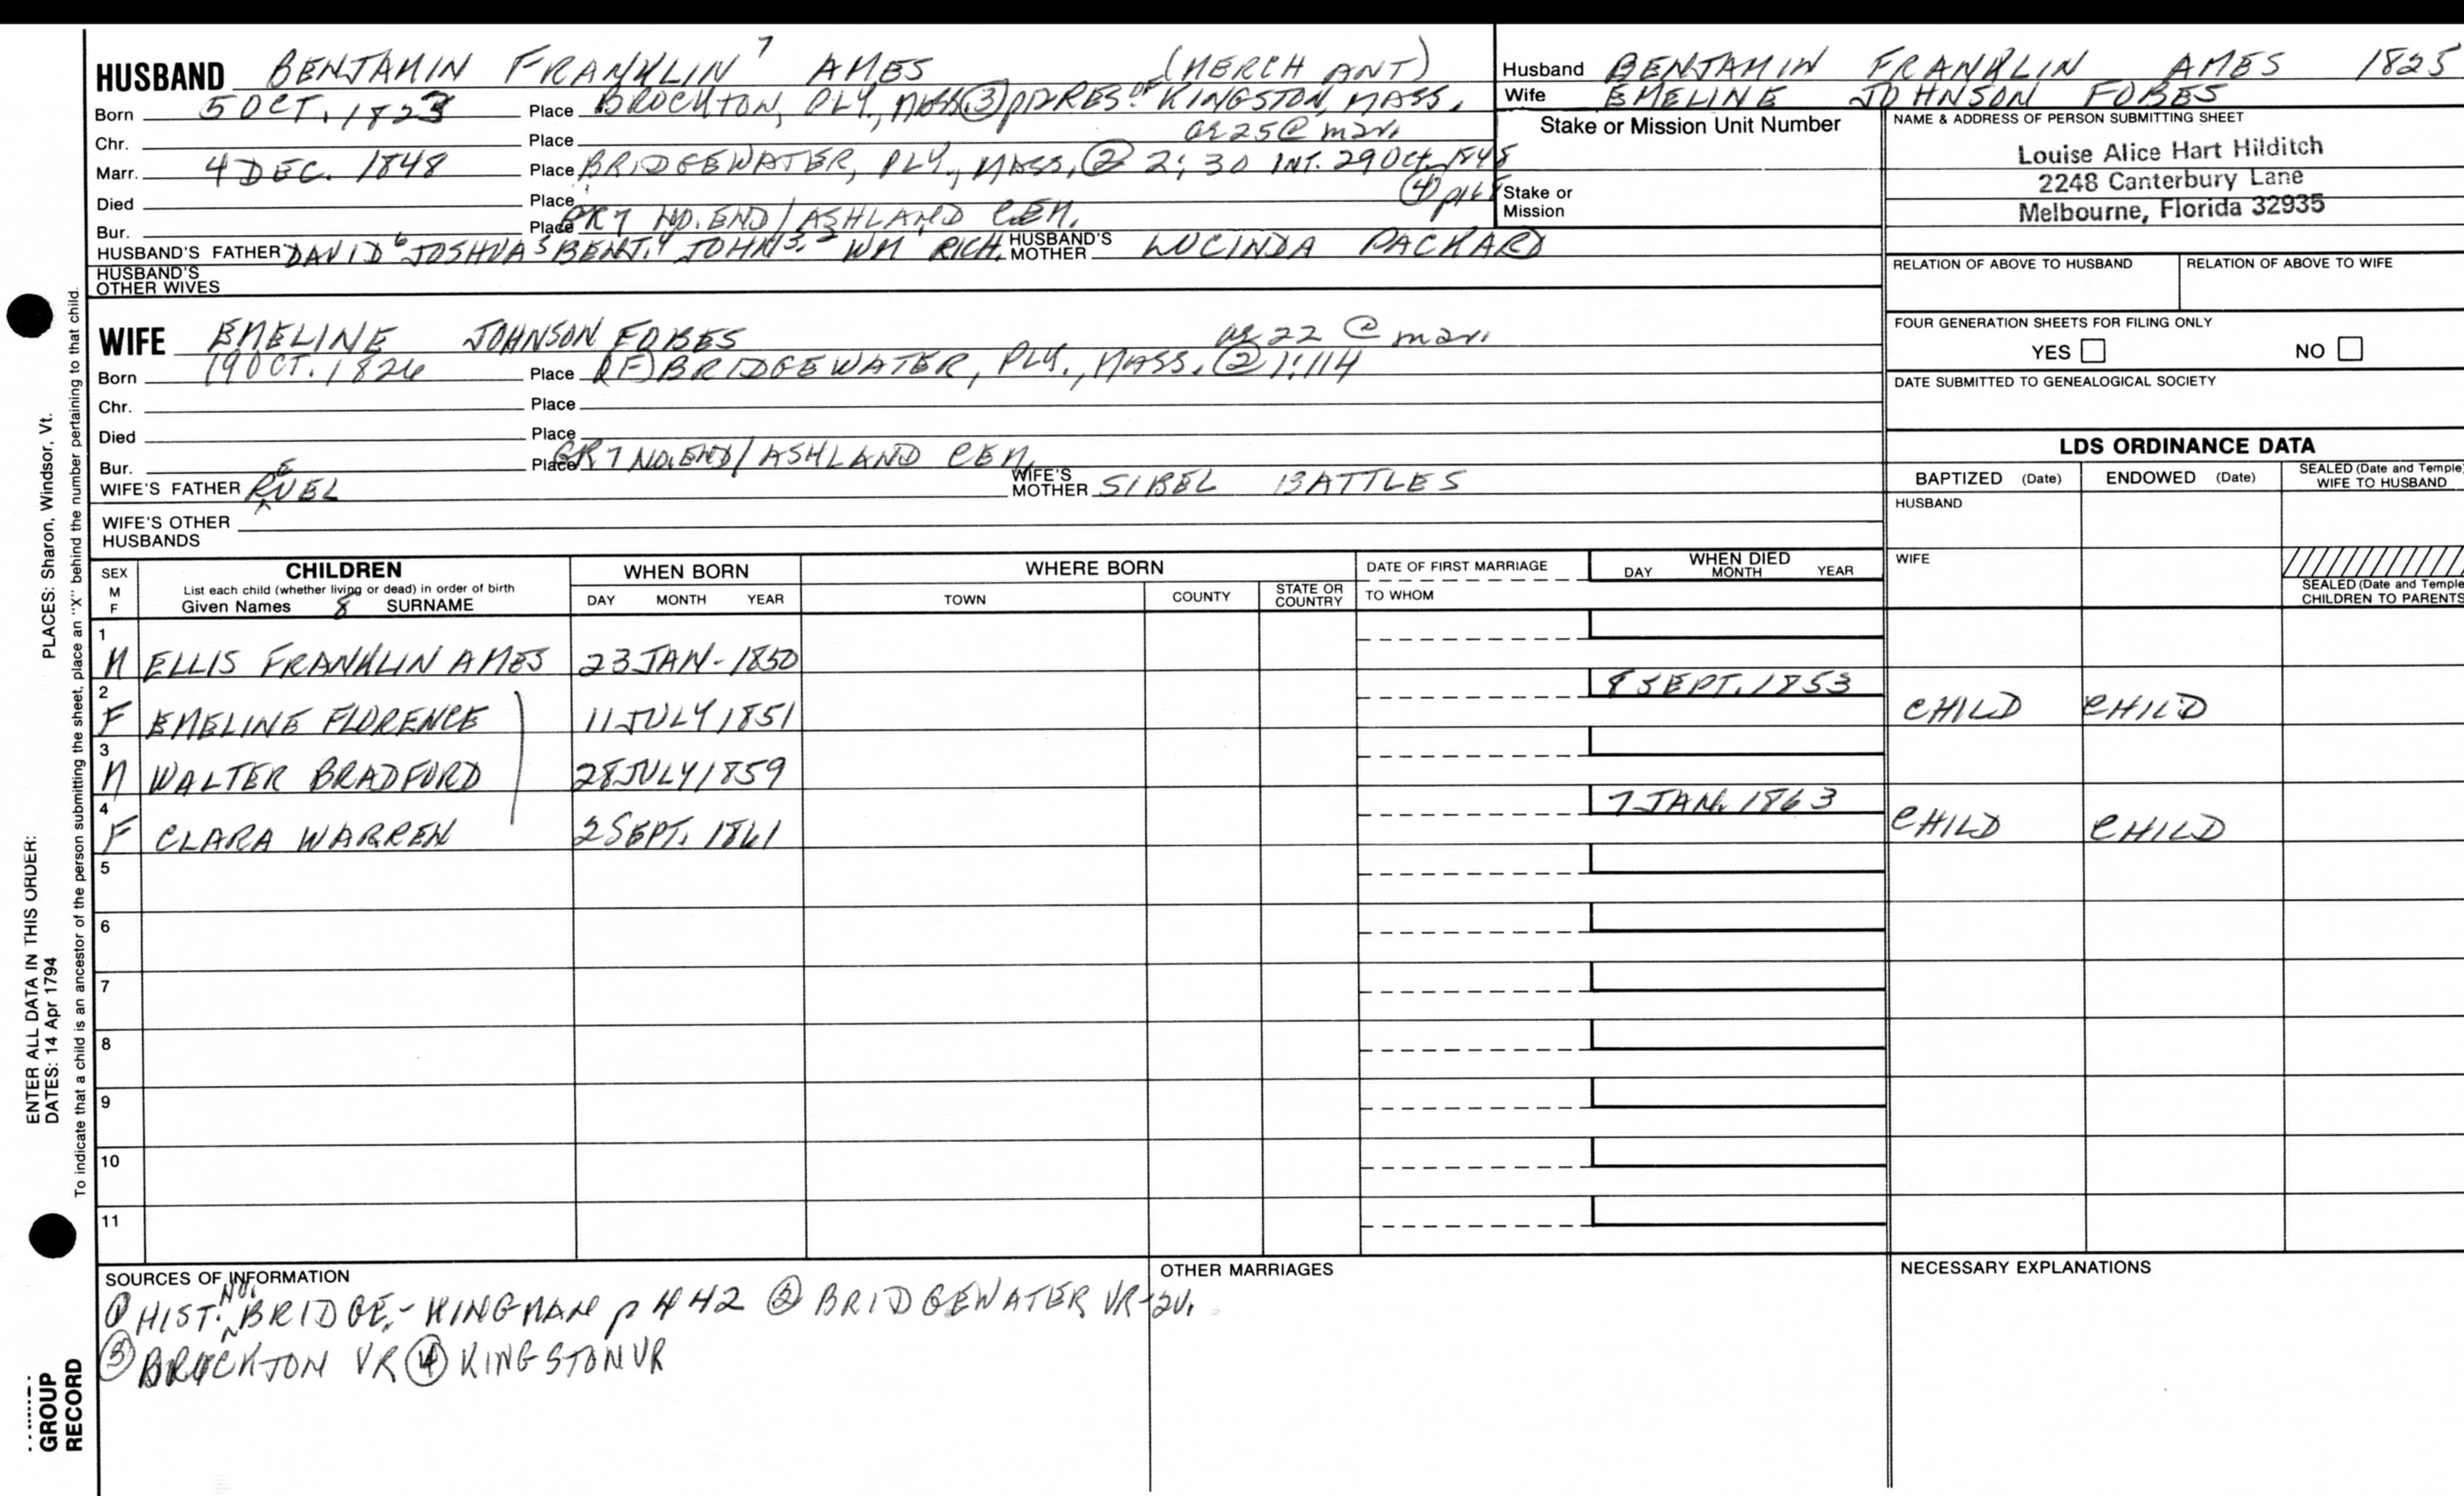 HUSBAND BENJAMIN FRANKLIN 7 AMES (MERCHANT)
Born 5 OCT. 1823 Place BROCKTON, PLY., MASS (3) p12 RES. OF KINGSTON, MASS.
Chr. Place ae 25 @ mar.
Marr. 4 DEC. 1848 Place BRIDGEWATER, PLY., MASS. (2) 2:30 INT. 29 Oct. 1848
Died Place (4)
Bur. Place GR7 NO. END/ASHLAND CEM.
HUSBAND'S FATHER DAVID 6 JOSHUA 5 BENJ. 4 JOHN 3 2 WM RICH. HUSBAND'S MOTHER LUCINDA PACKARD
HUSBAND'S OTHER WIVES
Husband BENJAMIN FRANKLIN AMES 1825
Wife EMELINE JOHNSON FOBES
Stake or Mission Unit Number
Stake or Mission
NAME & ADDRESS OF PERSON SUBMITTING SHEET
Louise Alice Hart Hilditch
2248 Canterbury Lane
Melbourne, Florida 32935
RELATION OF ABOVE TO HUSBAND RELATION OF ABOVE TO WIFE
FOUR GENERATION SHEETS FOR FILING ONLY
YES NO
DATE SUBMITTED TO GENEALOGICAL SOCIETY
WIFE EMELINE JOHNSON FOBES ae 22 @ mar.
Born 19 OCT. 1826 Place (F) BRIDGEWATER, PLY., MASS. (2) 1:114
Chr. Place
Died Place
Bur. Place GR7 NO. END/ASHLAND CEM.
WIFE'S FATHER REUEL WIFE'S MOTHER SIBEL BATTLES
WIFE'S OTHER HUSBANDS
LDS ORDINANCE DATA
BAPTIZED (Date) ENDOWED (Date) SEALED (Date and Temple) WIFE TO HUSBAND
HUSBAND
WIFE
SEALED (Date and Temple) CHILDREN TO PARENTS
SEX M F CHILDREN WHEN BORN WHERE BORN DATE OF FIRST MARRIAGE WHEN DIED
List each child (whether living or dead) in order of birth
Given Names 8 SURNAME DAY MONTH YEAR TOWN COUNTY STATE OR COUNTRY TO WHOM DAY MONTH YEAR
1 M ELLIS FRANKLIN AMES 23 JAN- 1850
2 F EMELINE FLORENCE 11 JULY 1851 8 SEPT. 1853 CHILD CHILD
3 M WALTER BRADFORD 28 JULY 1859
4 F CLARA WARREN 2 SEPT. 1861 7 JAN. 1863 CHILD CHILD
5
6
7
8
9
10
11
SOURCES OF INFORMATION
(1) HIST. NO. BRIDGE.- KINGMAN p 442 (2) BRIDGEWATER VR-2V.
(3) BROCKTON VR (4) KINGSTON VR
OTHER MARRIAGES
NECESSARY EXPLANATIONS
PLACES: Sharon, Windsor, Vt.
ENTER ALL DATA IN THIS ORDER:
DATES: 14 Apr 1794
To indicate that a child is an ancestor of the person submitting the sheet, place an "X" behind the number pertaining to that child.
GROUP
RECORD